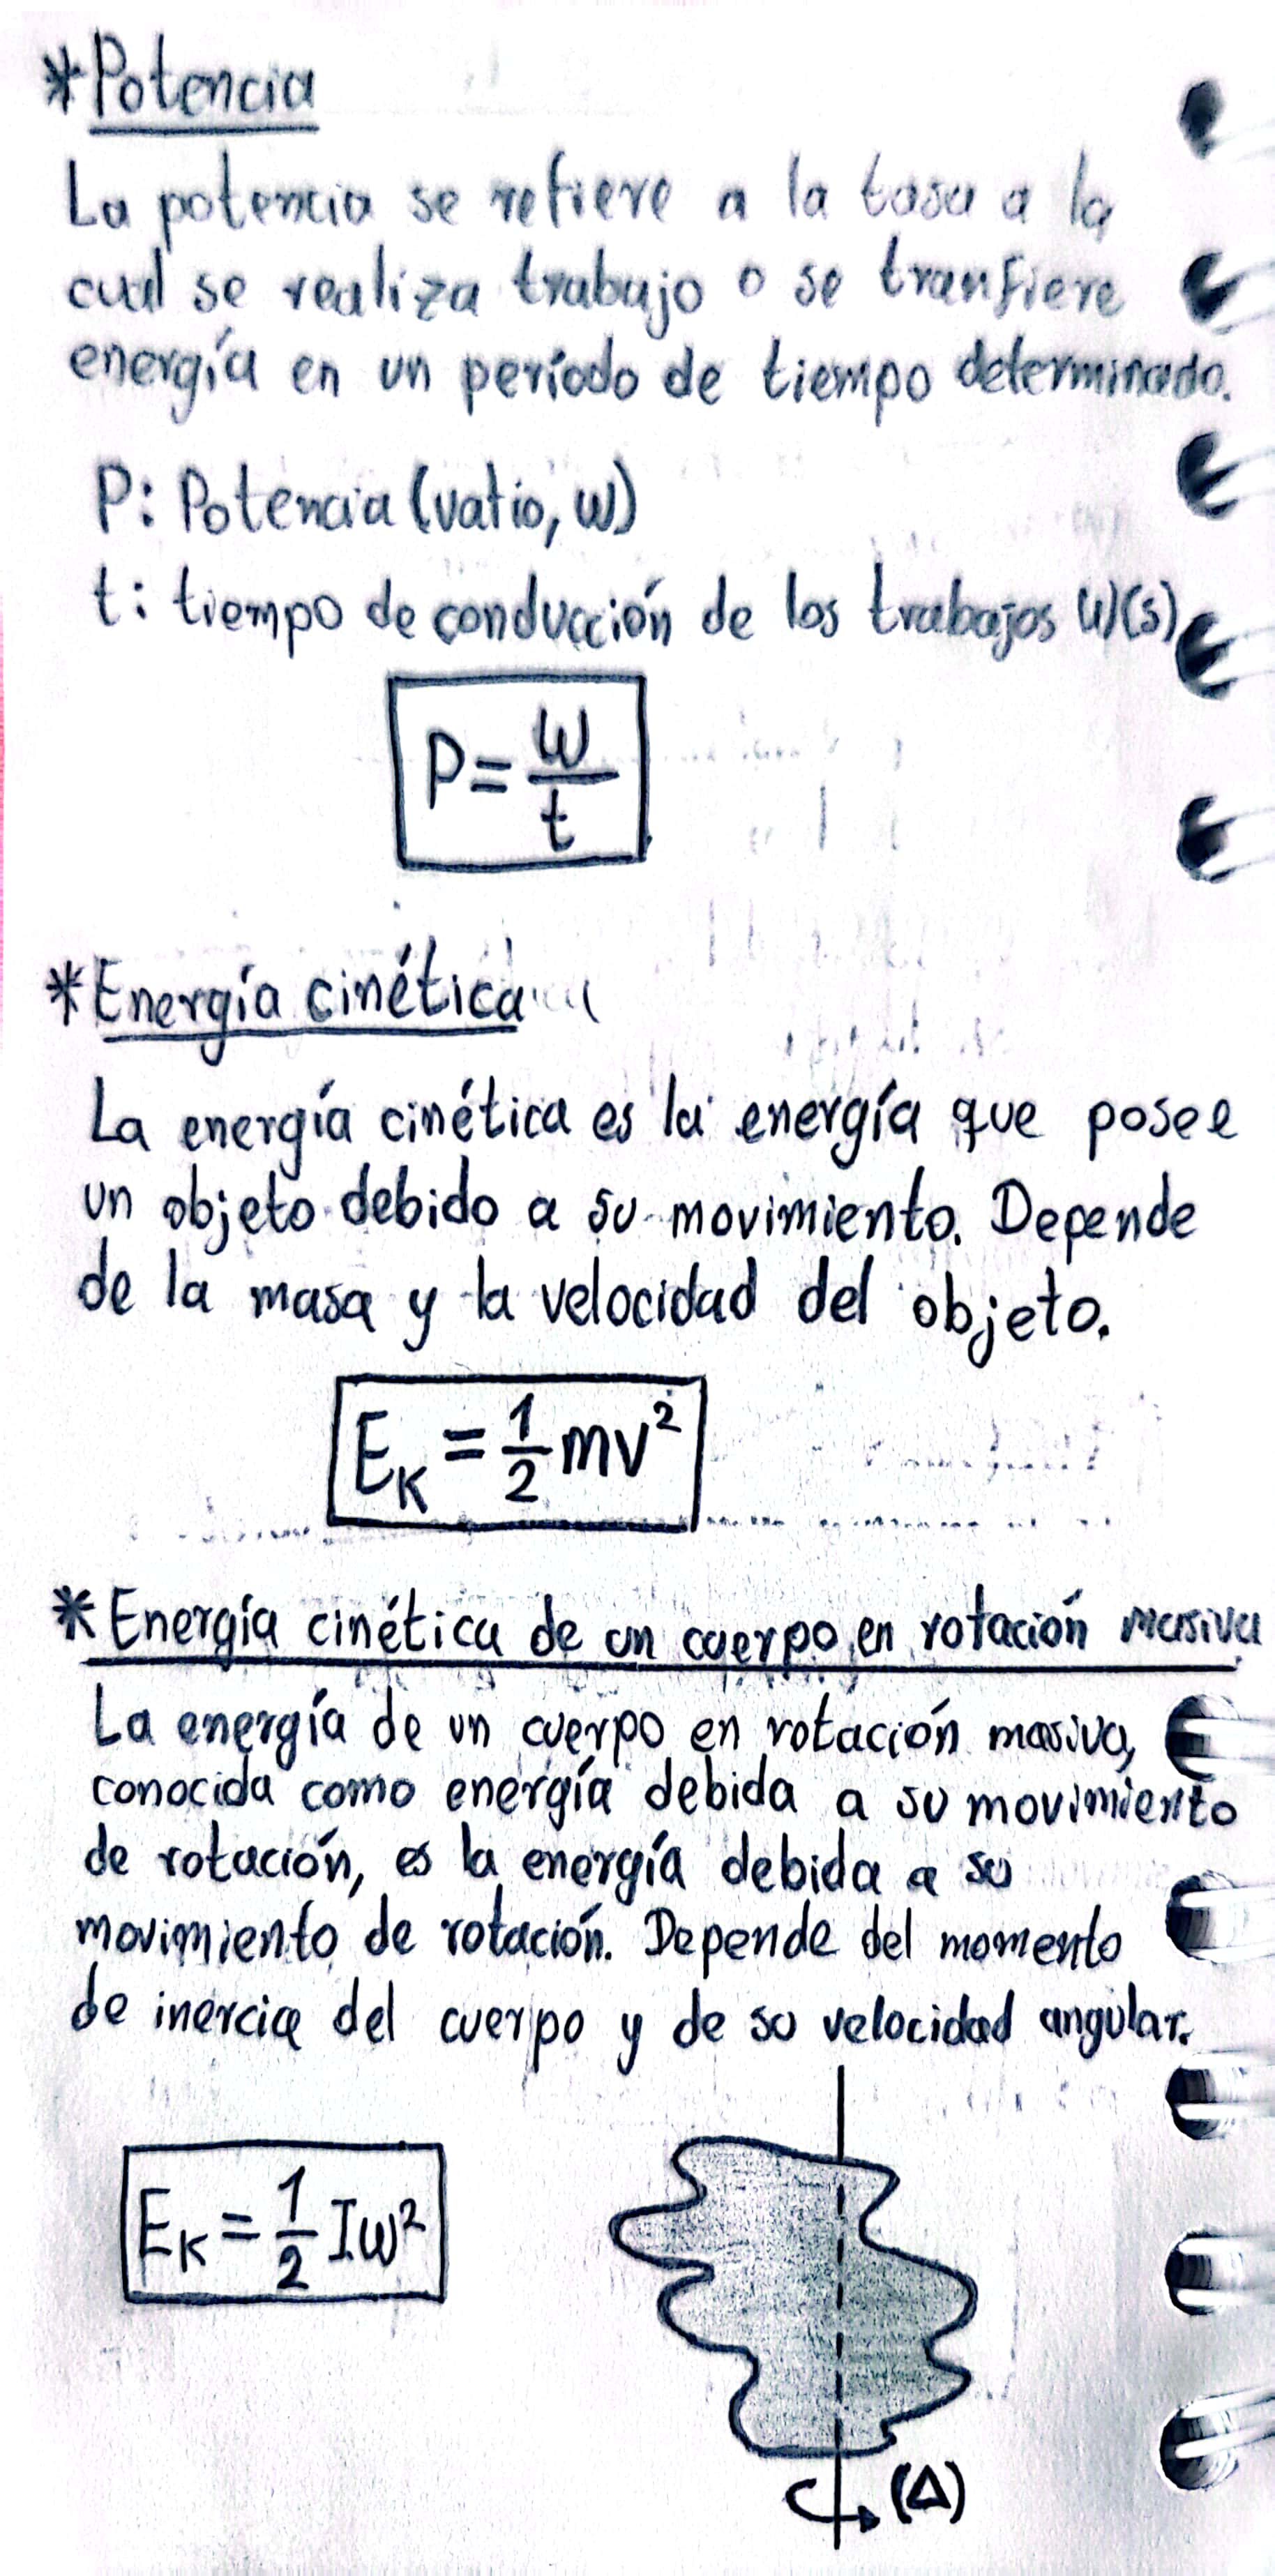 *Potencia
La potencia se refiere a la tasa a la
cual se realiza trabajo o se tranfiere
energía en un período de tiempo determinado.
P: Potencia (vatio, W)
t: tiempo de conducción de los trabajos W(s)
P = W/t
*Energía cinética
La energía cinética es la energía que posee
un objeto debido a su movimiento. Depende
de la masa y la velocidad del objeto.
E_K = 1/2 mv²
*Energía cinética de un cuerpo en rotación masiva
La energía de un cuerpo en rotación masiva,
conocida como energía debida a su movimiento
de rotación, es la energía debida a su
movimiento de rotación. Depende del momento
de inercia del cuerpo y de su velocidad angular.
E_K = 1/2 Iω²
(Δ)